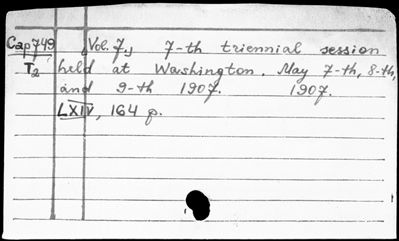 Cap 749 Vol. 7, 7-th triennial session
T2 held at Washington. May 7-th, 8-th,
and 9-th 1907. 1907.
LXIV, 164 p.